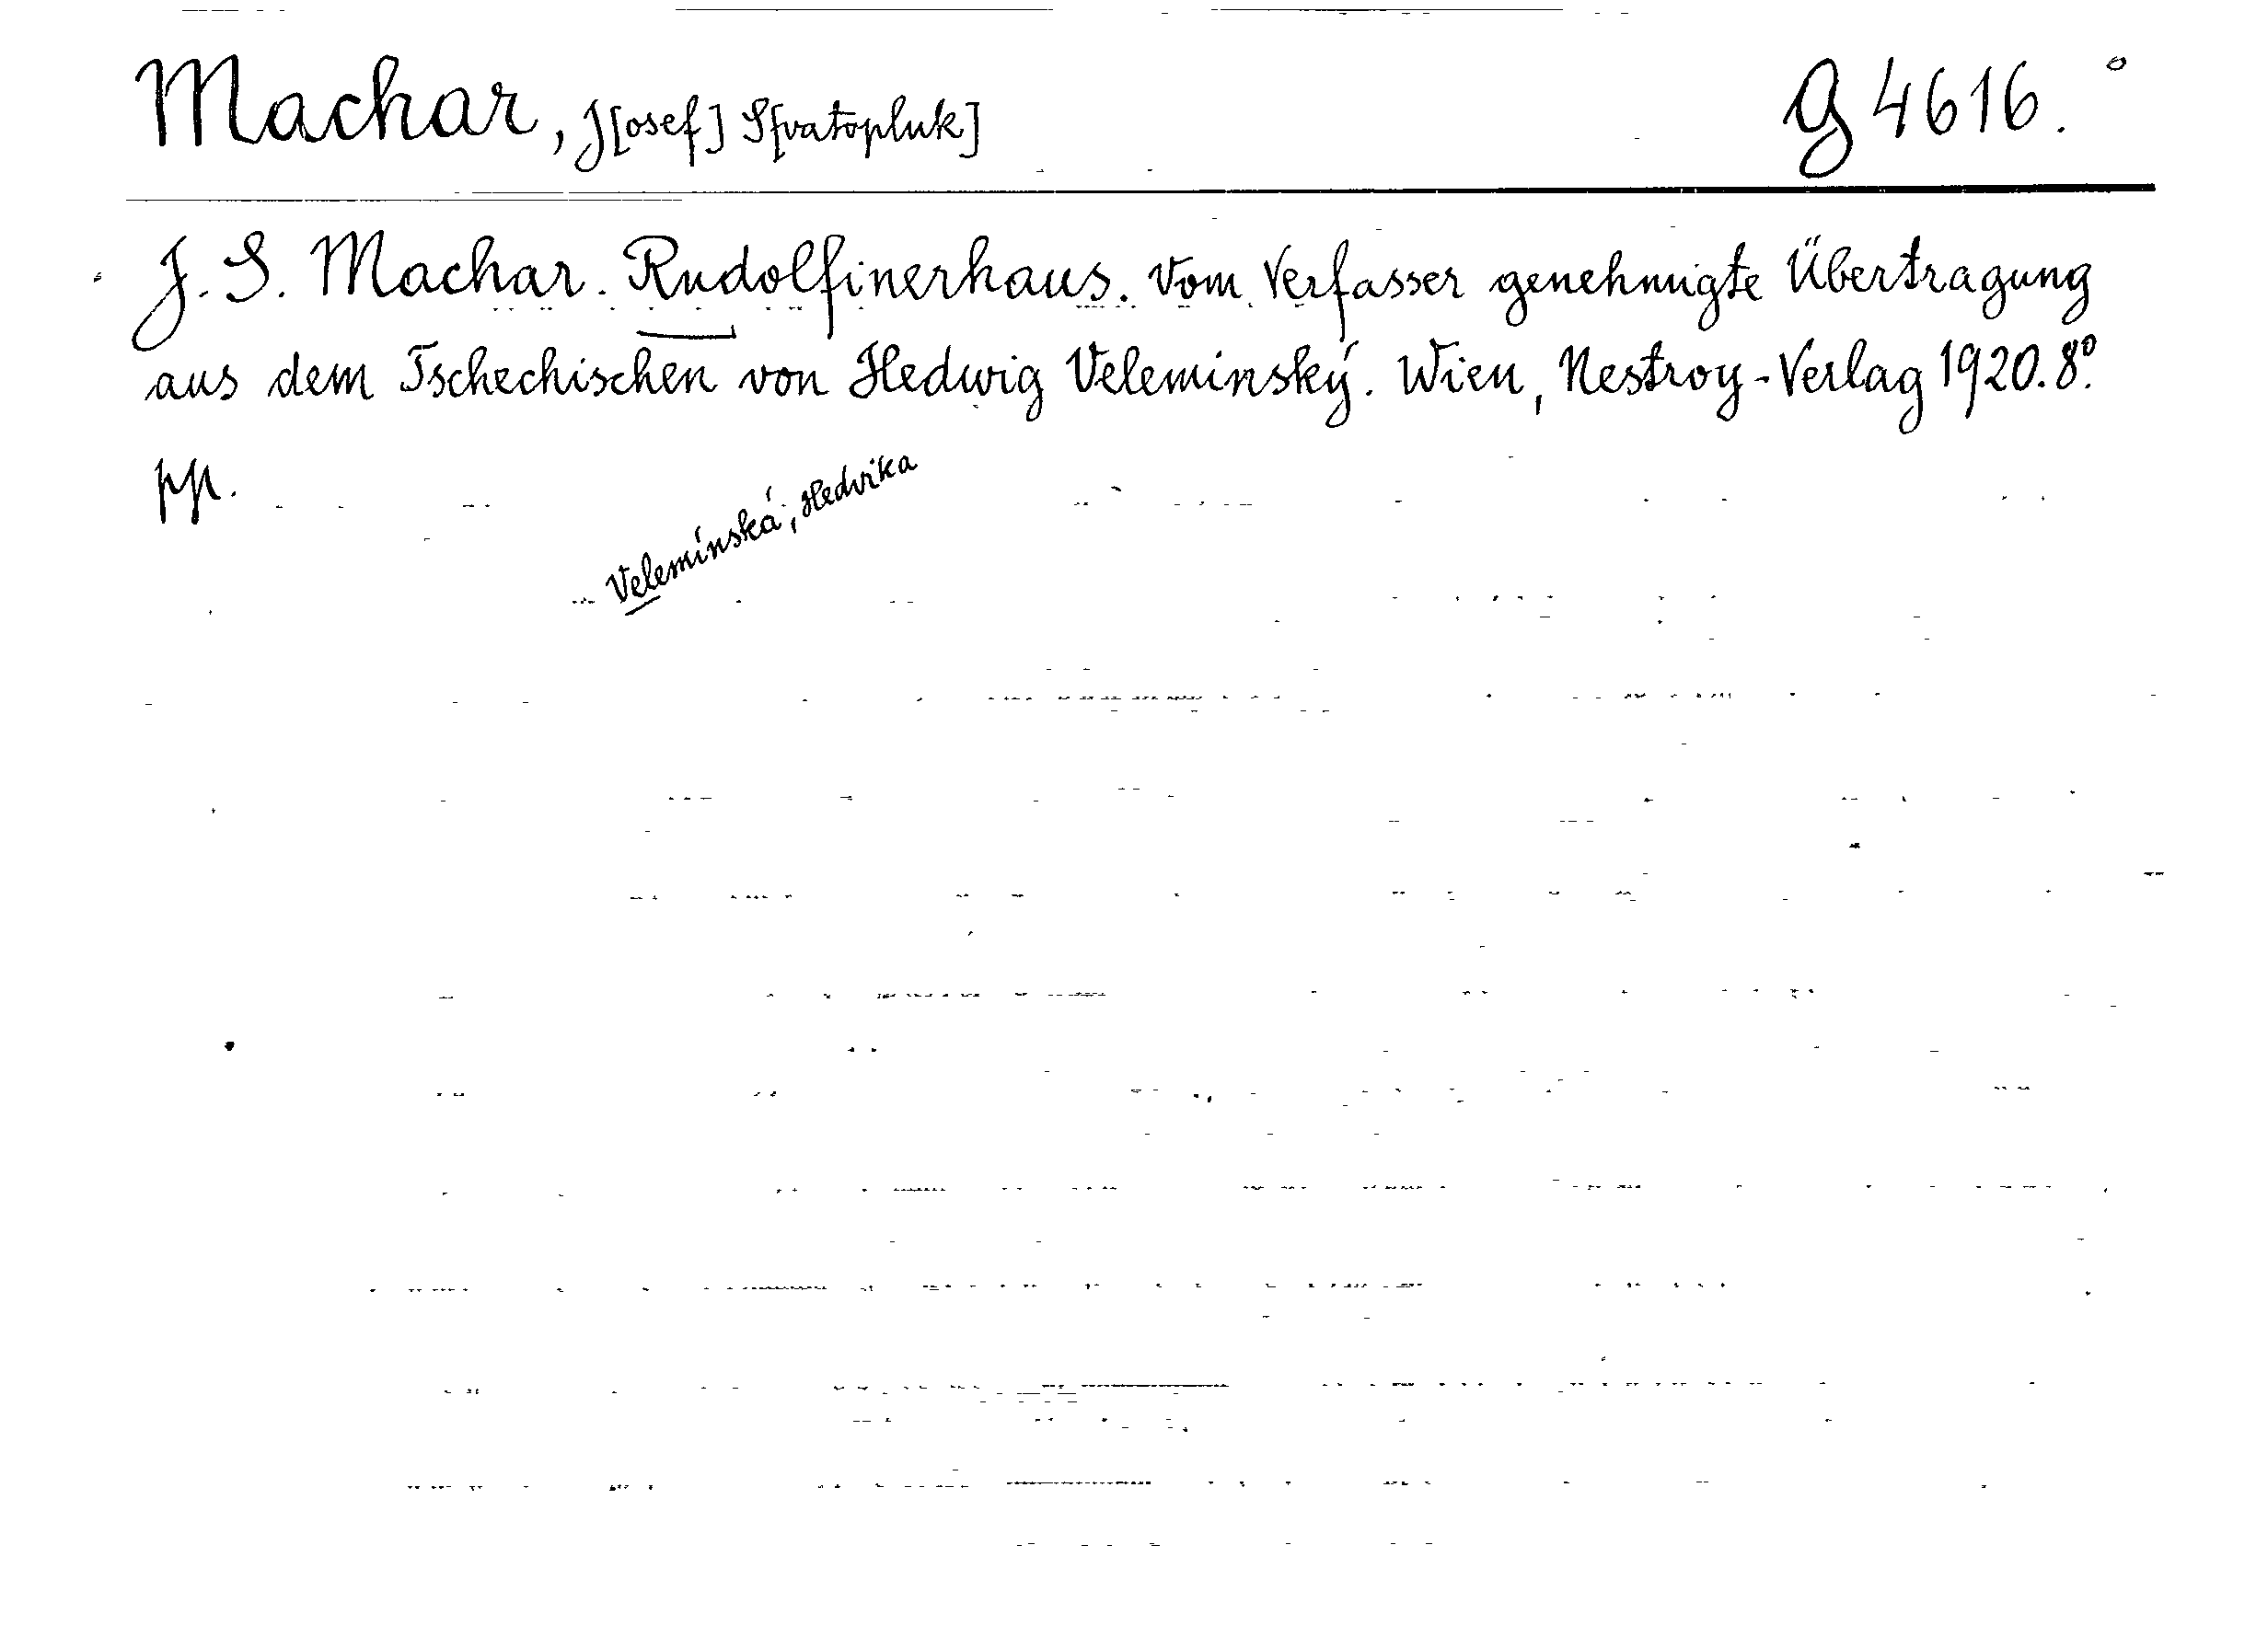 Machar, J[osef] S[vatopluk] G 4616.
J. S. Machar. Rudolfinerhaus. Vom Verfasser genehmigte Übertragung
aus dem Tschechischen von Hedwig Veleminský. Wien, Nestroy-Verlag 1920. 8º.
ppl.
Velemínská, Hedvika